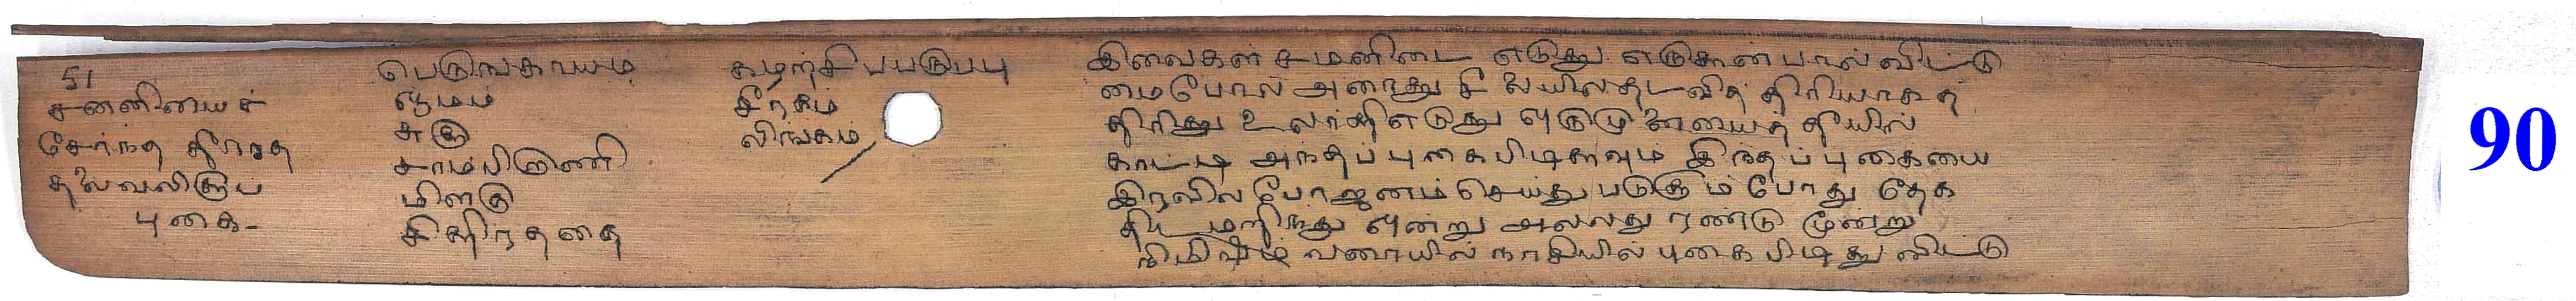 51
சன்னியைச்
சேர்ந்த தீராத
தலைவலிக்குப்
புகை-
பெருங்காயம்
ஓமம்
சுக்கு
சாம்பிராணி
மிளகு
கழற்சிபபருபபு
சீரகம்
லிங்கம்
இவைகள் சமனிடை எடுத்து எருக்கன் பால் விட்டு
மைபோல் அரைத்து சீலையில் தடவித் திரியாகத்
திரித்து உலர்த்தி எடுத்து ஒரு முனையைத் தீயில்
காட்டி அந்தப் புகை பிடிக்கவும் இந்தப் புகையை
இரவில் போஜனம் செய்து படுக்கும் போது தேக
திடமறிந்து ஒன்று அல்லது ரண்டு மூன்று
நிமிஷம் வரையில் நாசியில் புகை பிடித்து விட்டு
90